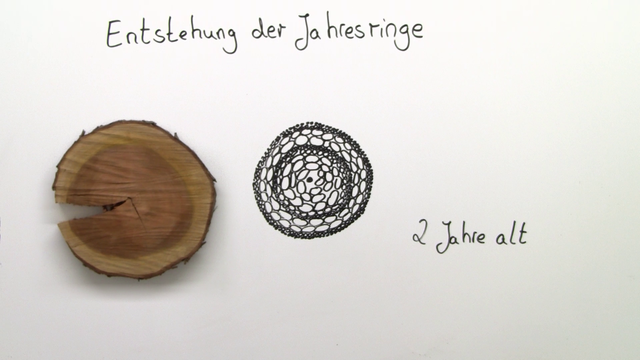 Entstehung der Jahresringe
2 Jahre alt